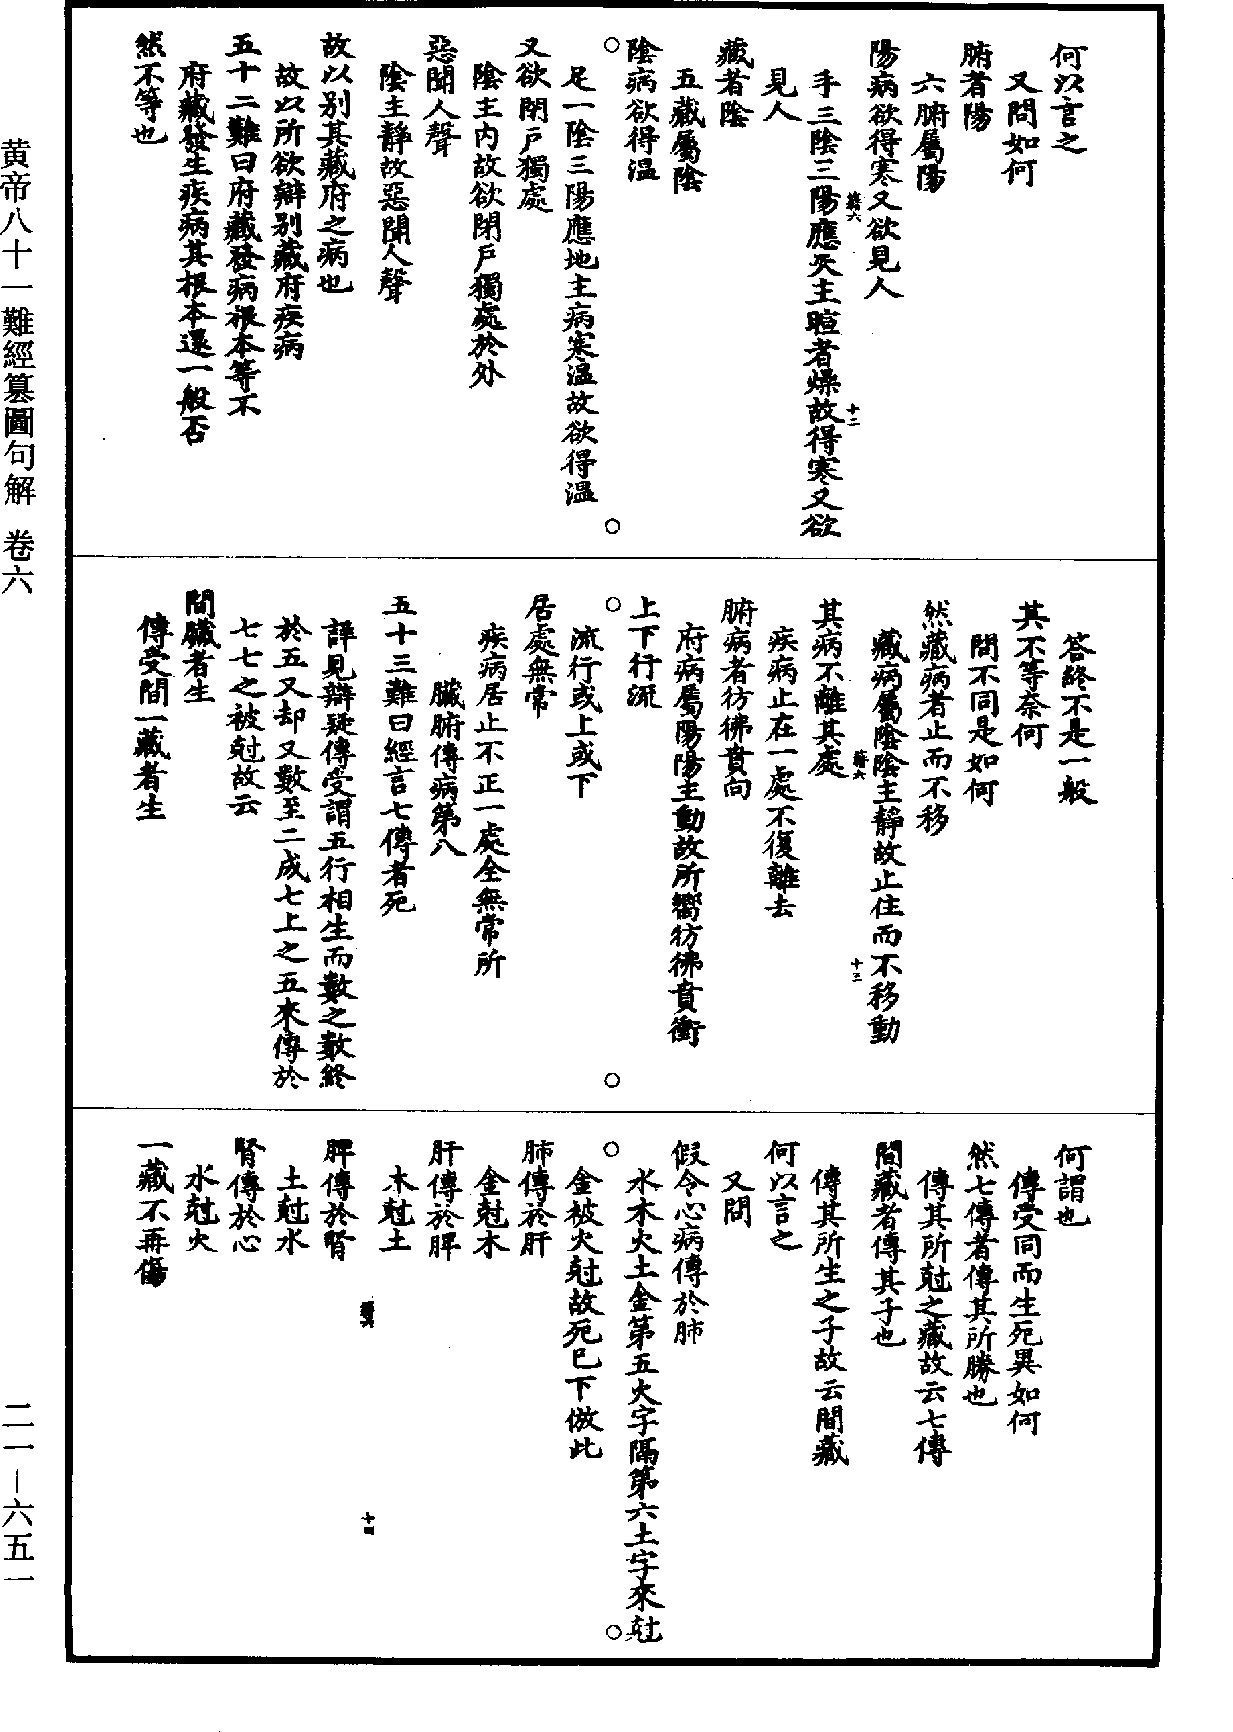 何以言之
又問如何
腑者陽
六腑屬陽
陽病欲得寒又欲見人
手三陰三陽應天主暄者燥故得寒又欲
見人
藏者陰
五藏屬陰
陰病欲得溫
足一陰三陽應地主病寒溫故欲得溫
又欲閉戶獨處
陰主內故欲閉戶獨處於外
惡聞人聲
陰主靜故惡聞人聲
故以別其藏府之病也
故以所欲辯別藏府疾病
五十二難曰府藏發病根本等不
府藏發生疾病其根本還一般否
然不等也
答終不是一般
其不等奈何
問不同是如何
然藏病者止而不移
藏病屬陰陰主靜故止住而不移動
其病不離其處
疾病止在一處不復離去
腑病者彷彿賁向
府病屬陽陽主動故所嚮彷彿賁衝
上下行流
流行或上或下
居處無常
疾病居止不正一處全無常所
臟腑傳病第八
五十三難曰經言七傳者死
詳見辯疑傳受謂五行相生而數之數終
於五又却又數至二成七上之五來傳於
七七之被尅故云
間臟者生
傳受間一藏者生
何謂也
傳受同而生死異如何
然七傳者傳其所勝也
傳其所尅之藏故云七傳
間藏者傳其子也
傳其所生之子故云間藏
何以言之
又問
假令心病傳於肺
水木火土金第五火字隔第六土字來尅
金被火尅故死已下倣此
肺傳於肝
金尅木
肝傳於脾
木尅土
脾傳於腎
土尅水
腎傳於心
水尅火
一藏不再傷
黄帝八十一難經篡圖句解 卷六
二一－六五一